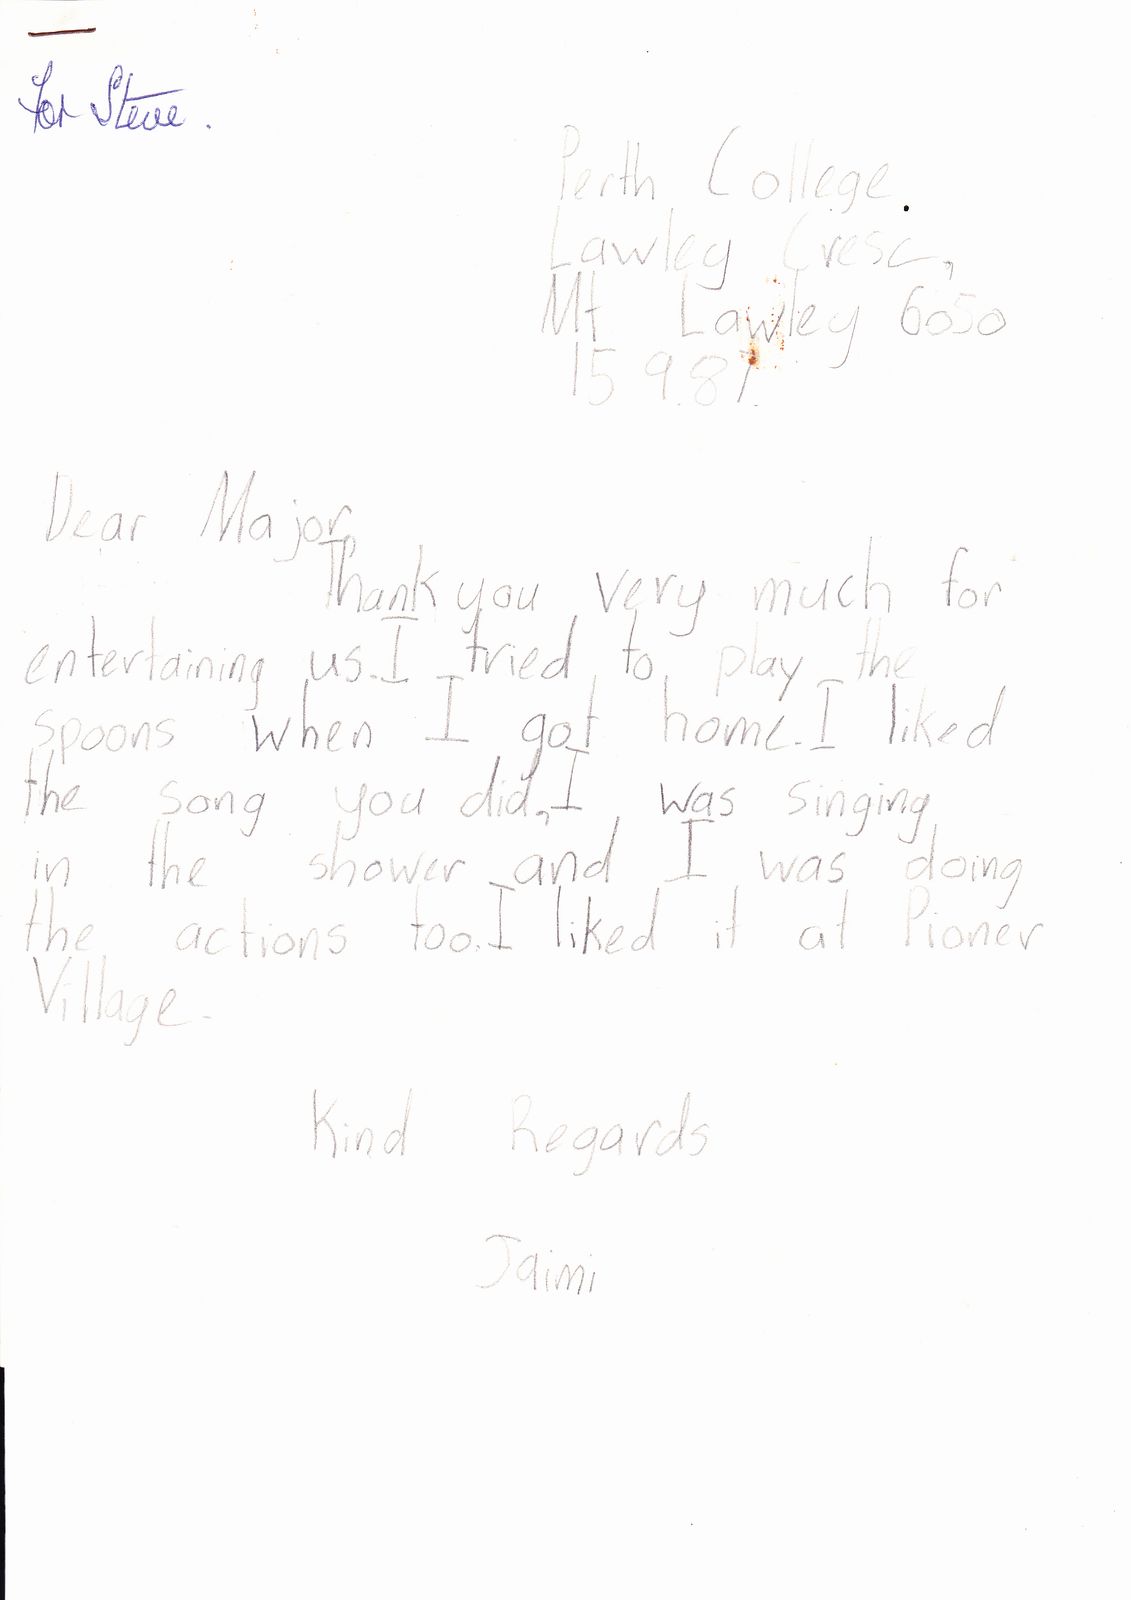 For Steve.
Perth College.
Lawley Cresc,
Mt Lawley 6050
15 9.87.
Dear Major,
Thank you very much for
entertaining us. I tried to play the
spoons when I got home. I liked
the song you did, I was singing
in the shower and I was doing
the actions too. I liked it at Pioner
Village.
Kind Regards
Jaimi